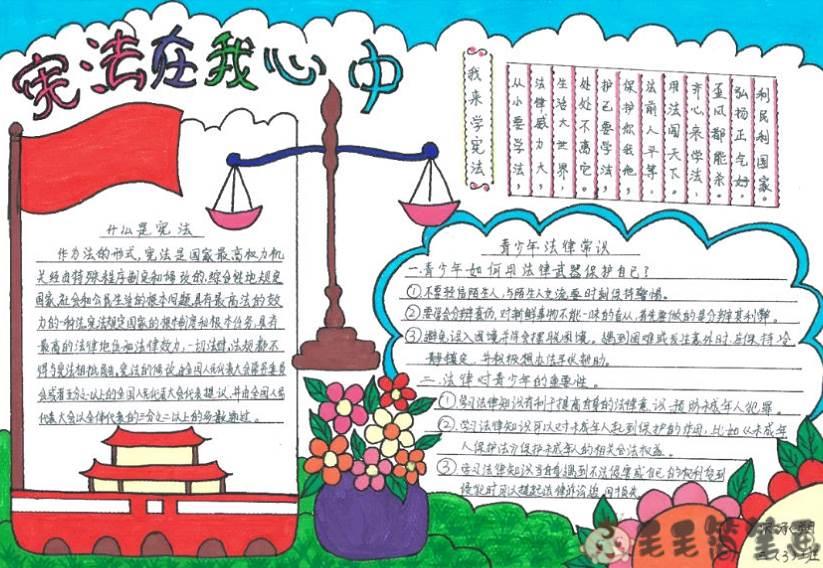 宪法在我心中
我来学宪法
从小要学法，
法律威力大，
生活大世界
处处不离它。
护己要学法，
保护你我他，
法前人平等，
用法闯天下。
齐心来学法，
歪风都能杀。
弘扬正气好
利民利国家。
什么是宪法
作为法的形式，宪法是国家最高权力机
关经由特殊程序制定和修改的，综合性地规定
国家、社会和公民生活的根本问题，具有最高法的效
力的一种法。宪法规定国家的根本制度和根本任务，具有
最高的法律地位和法律效力，一切法律、法规都不
得与宪法相抵触。宪法的修改，由全国人民代表大会常务委员
会或者五分之一以上的全国人民代表大会代表提议，并由全国人民
代表大会以全体代表的三分之二以上的多数通过。
青少年法律常识
一.青少年如何用法律武器保护自己？
①不要轻信陌生人，与陌生人交流，要时刻保持警惕。
②要学会分辨真伪，对新鲜事物不能一味的盲从，首先要做的是分辨其利弊。
③避免误入困境并学会摆脱困境。遇到困难或发生意外时，应保持冷
静镇定，并积极想办法寻求帮助。
二.法律对青少年的重要性。
①学习法律知识有利于提高自身的法律意识，预防未成年人犯罪。
②学习法律知识可以对未成年人起到保护的作用，比如《未成年
人保护法》保护未成年人的相关合法权益。
③学习法律知识当自身遇到不法侵害或自己的权利受到
侵犯时可以提起法律诉讼
毛毛简笔画